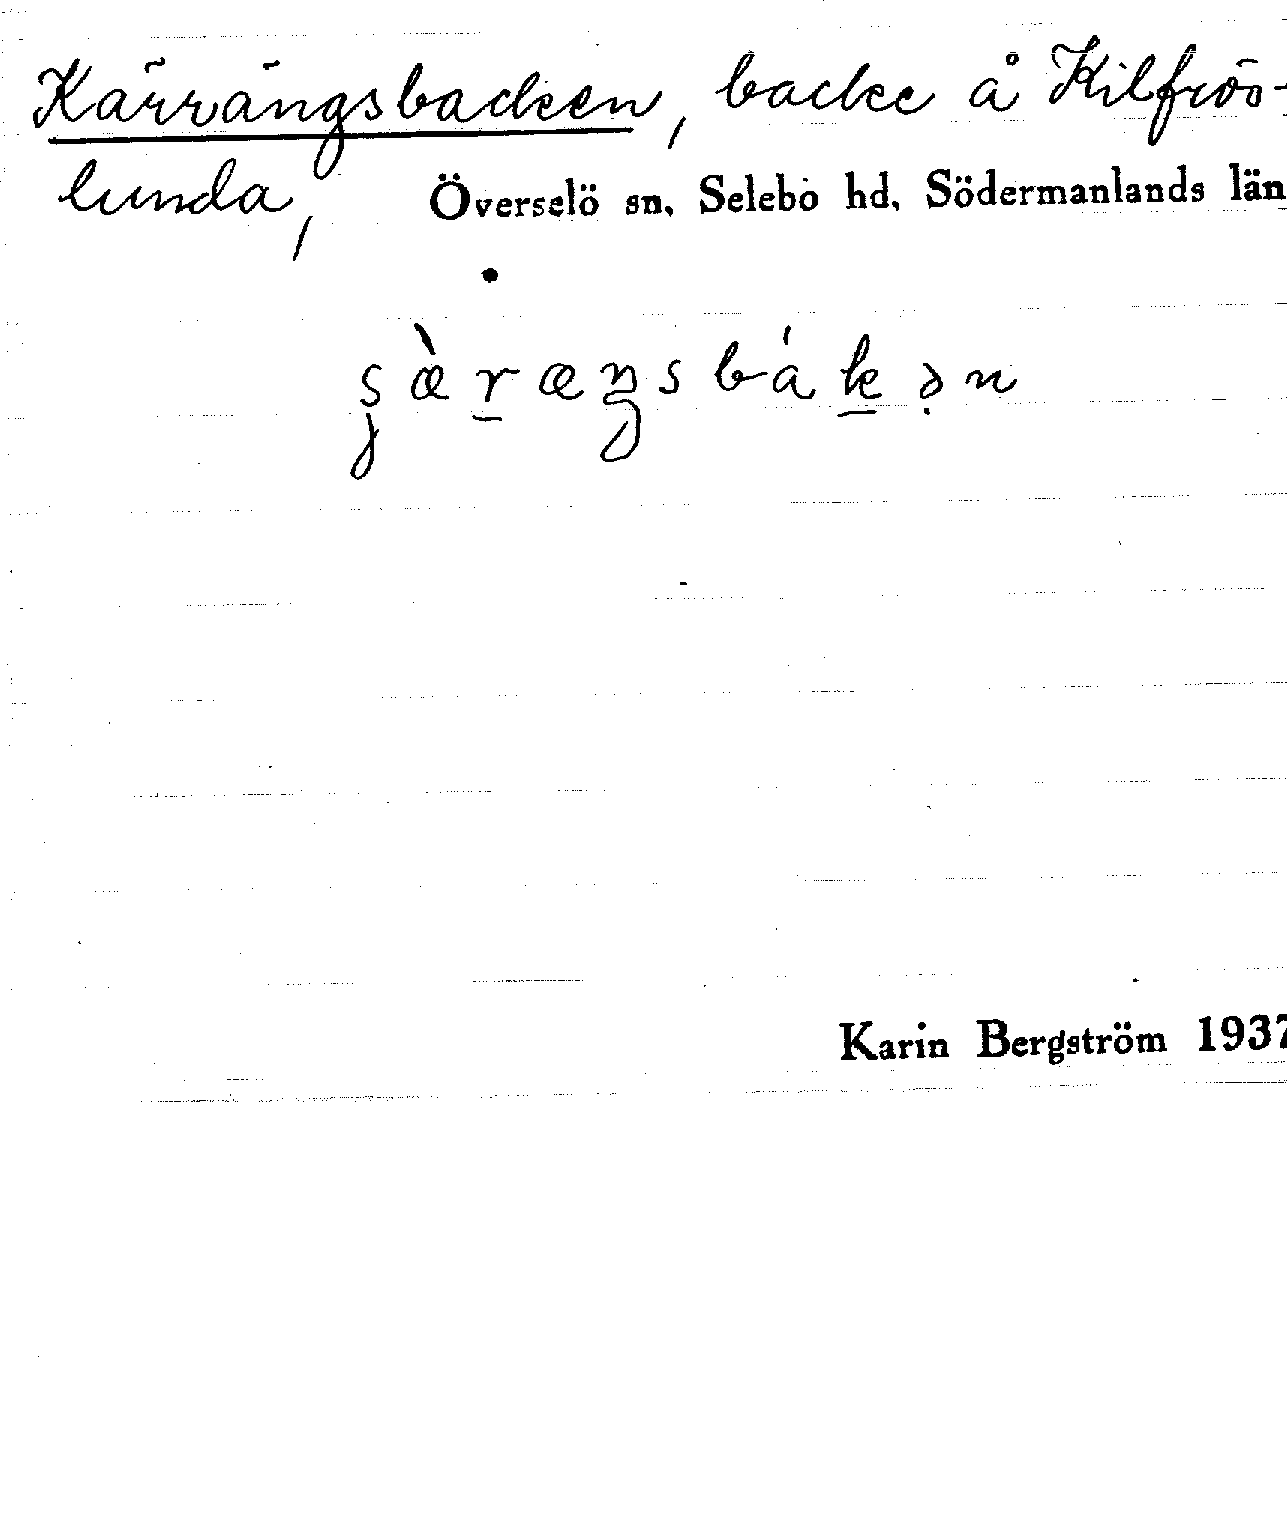 Kärrängsbacken, backe å Kilfrös-
lunda, Överselö sn, Selebo hd, Södermanlands län
Karin Bergström 1937